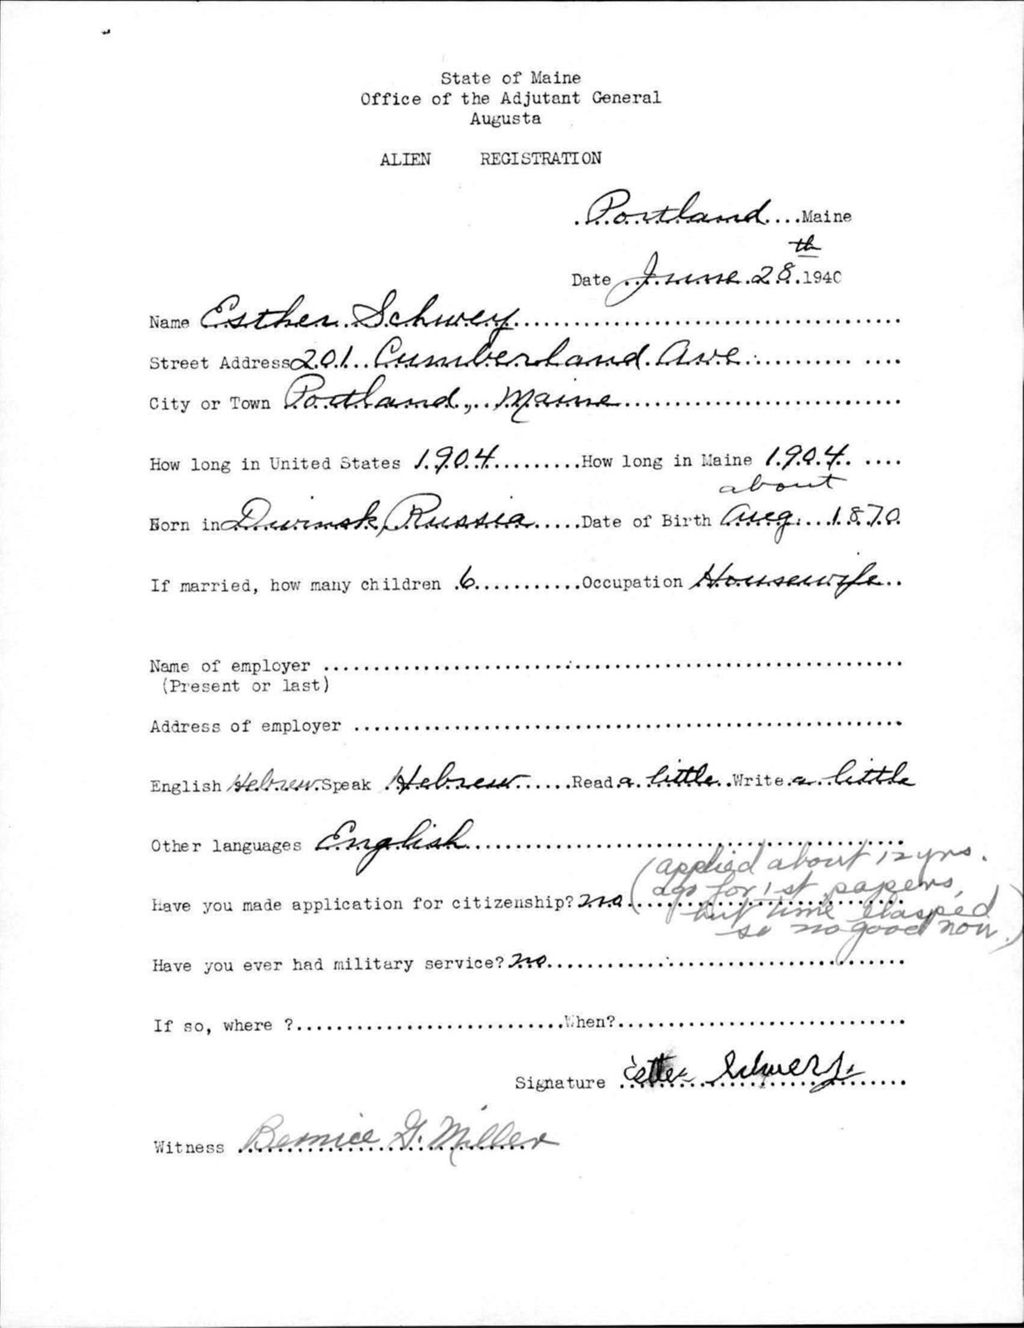 State of Maine
Office of the Adjutant General
Augusta
ALIEN REGISTRATION
Portland....Maine
Date June 28th 1940
Name Esther Schwey
Street Address 201 Cumberland Ave
City or Town Portland, Maine
How long in United States 1904 How long in Maine 1904
Born in Dwinsk, Russia Date of Birth about Aug. 1870
If married, how many children 6 Occupation Housewife
Name of employer
(Present or last)
Address of employer
English Hebrew Speak Hebrew Read a little Write a little
Other languages English
(applied about 12 yrs.
ago for 1st papers,
Have you made application for citizenship? no
but time elasped
so no good now.)
Have you ever had military service? no
If so, where ? When?
Signature Schwey
Witness Bernice G. Miller